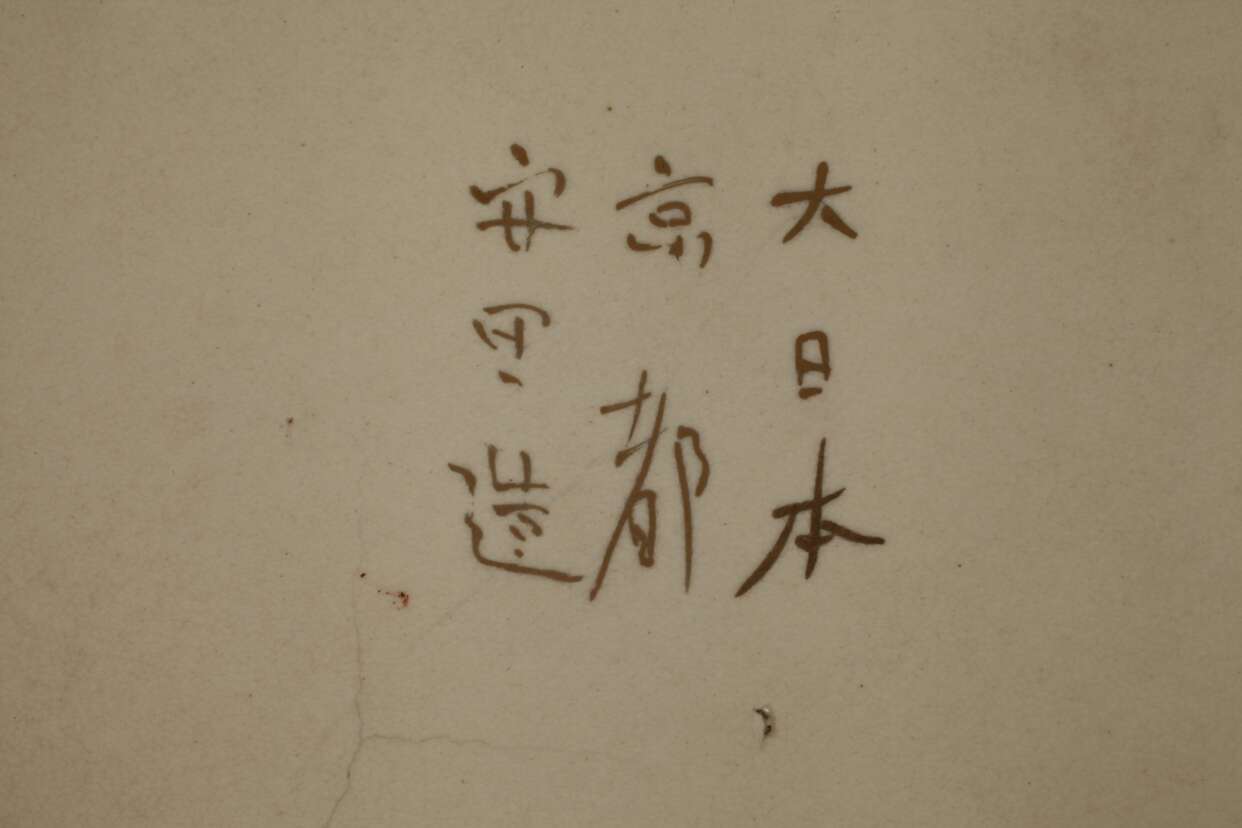 大日本
京都
安田造